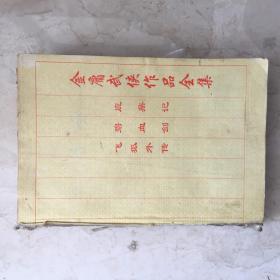 金庸武侠作品全集
鹿鼎记
碧血剑
飞狐外传